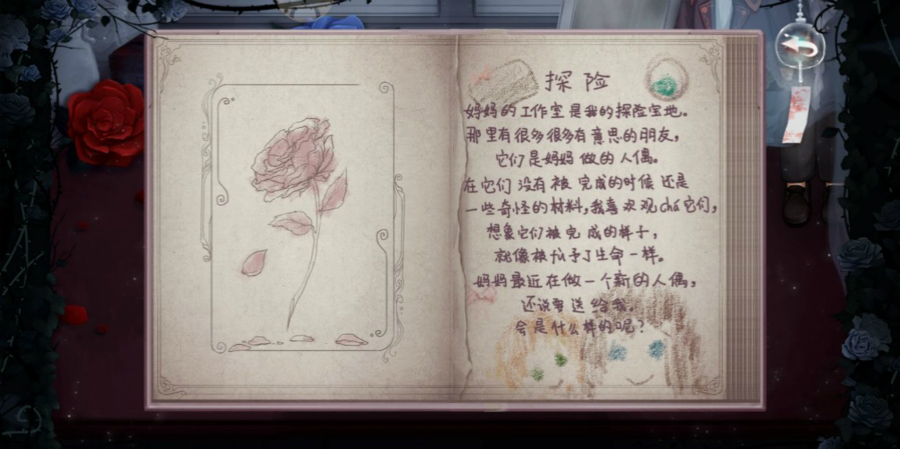 探险
妈妈的工作室是我的探险宝地。
那里有很多很多有意思的朋友,
它们是妈妈做的人偶。
在它们没有被完成的时候还是
一些奇怪的材料,我喜欢观chá它们,
想象它们被完成的样子,
就像被付予了生命一样。
妈妈最近在做一个新的人偶,
还说要送给我,
会是什么样的呢?